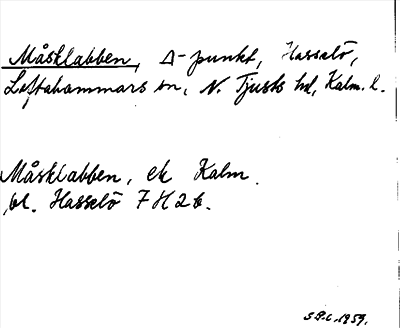 Måsklabben, Δ-punkt, Hasselö,
Loftahammars sn, N. Tjusts hd, Kalm. l.
Måsklabben, ek Kalm.
bl. Hasselö 7H2b.
S.B.L. 1959.